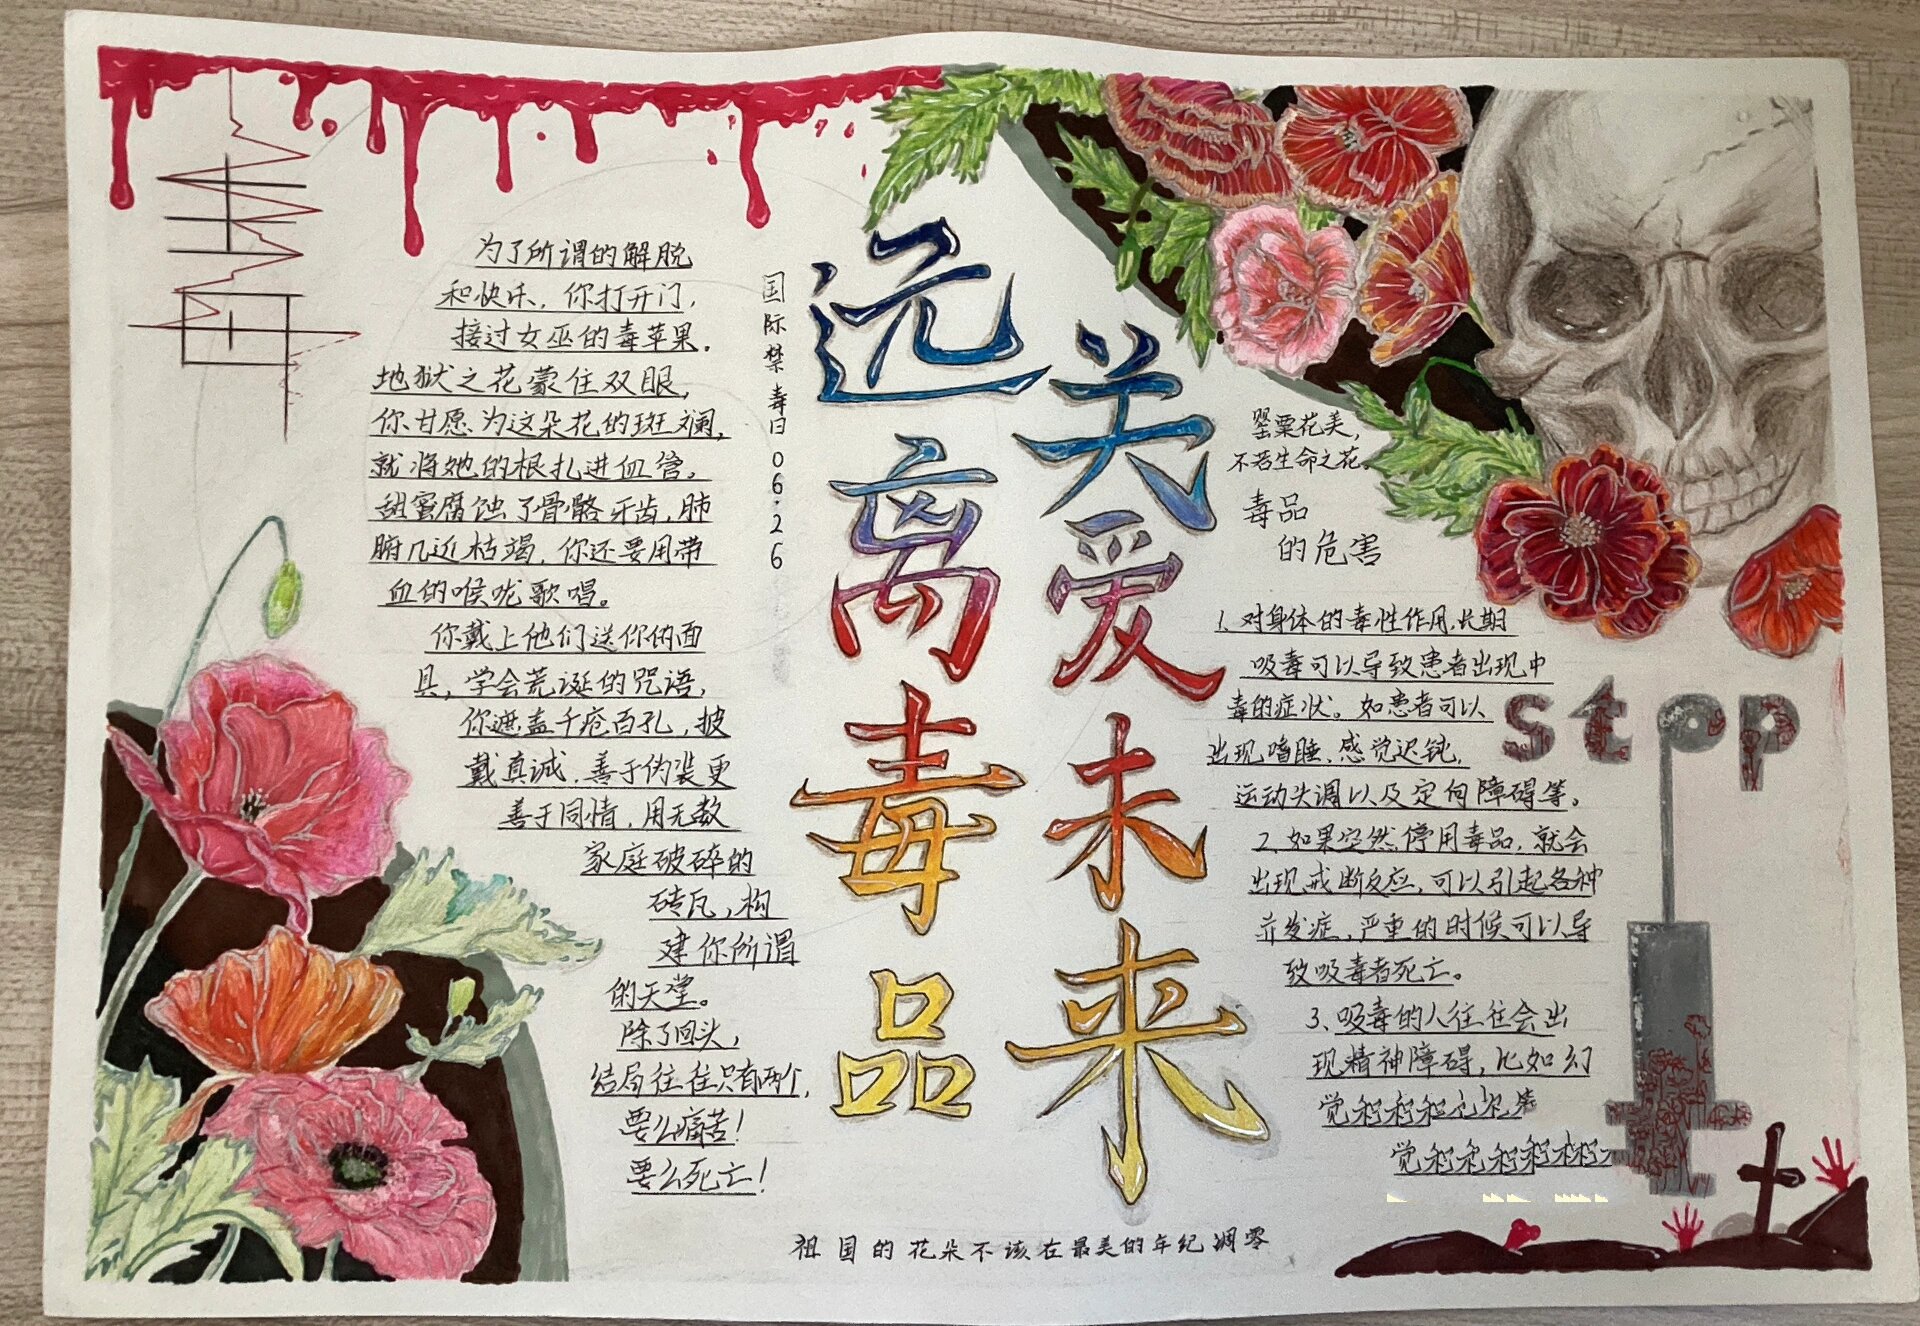 毒
为了所谓的解脱
和快乐，你打开门，
接过女巫的毒苹果。
地狱之花蒙住双眼，
你甘愿为这朵花的斑斓，
就将她的根扎进血管。
甜蜜腐蚀了骨骼牙齿，肺
腑几近枯竭，你还要用带
血的喉咙歌唱。
你戴上他们送你的面
具，学会荒诞的咒语，
你遮盖千疮百孔，披
戴真诚，善于伪装更
善于同情，用无数
家庭破碎的
砖瓦，构
建你所谓
的天堂。
除了回头，
结局往往只有两个，
要么痛苦！
要么死亡！
国际禁毒日06.26
远离毒品
关爱未来
罂粟花美，
不若生命之花。
毒品
的危害
1、对身体的毒性作用，长期
吸毒可以导致患者出现中
毒的症状。如患者可以
出现嗜睡、感觉迟钝，
运动失调以及定向障碍等。
2、如果突然停用毒品，就会
出现戒断反应，可以引起各种
并发症，严重的时候可以导
致吸毒者死亡。
3、吸毒的人往往会出
现精神障碍，比如幻
觉
觉
stop
祖国的花朵不该在最美的年纪凋零